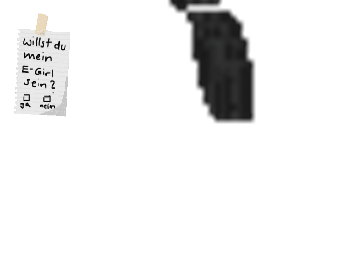 willst du
mein
E-Girl
sein?
ja nein